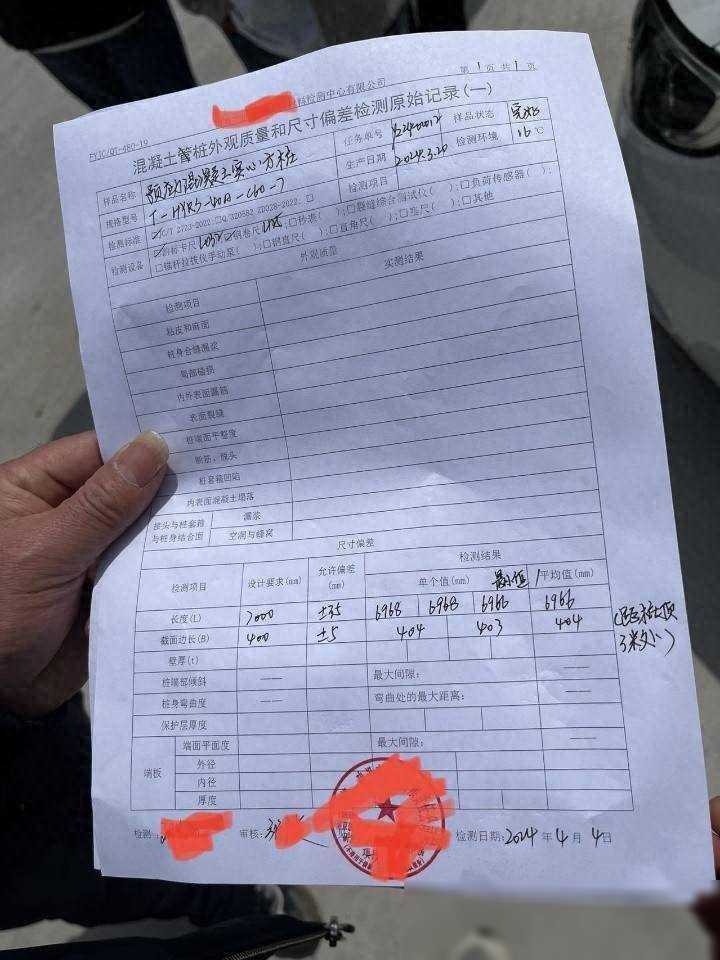 FYJC/QT-480-19
检测中心有限公司
第 1 页 共 1 页
混凝土管桩外观质量和尺寸偏差检测原始记录(一)
样品名称 预应力混凝土实心方桩 任务单号 样品状态 完好
规格型号 生产日期 2024.3.20 检测环境 16 ℃
检测标准 检测项目
检测设备 游标卡尺 钢卷尺 □砂浆( );□裂缝综合测试仪( );□负荷传感器( );
□锚杆拉拔仪手动泵( );□钢直尺( );□直角尺( );□塞尺( );□其他
外观质量
检测项目 实测结果
粘皮和麻面
桩身合缝漏浆
局部磕损
内外表面露筋
表面裂缝
桩端面平整度
断筋、脱头
桩套箍凹陷
内表面混凝土塌落
接头与桩套箍与桩身结合面 漏浆
空洞与蜂窝
尺寸偏差
检测项目 设计要求(mm) 允许偏差(mm) 检测结果
单个值(mm) 最小值/平均值(mm)
长度(L) 7000 ±35 6968 6968 6966 6966
截面边长(B) 400 ±5 404 403 404
(距桩顶3米处)
壁厚(t)
桩端部倾斜 —— 最大间隙: ——
桩身弯曲度 —— 弯曲处的最大距离: ——
保护层厚度
端板 端面平面度 最大间隙: ——
外径
内径
厚度
检测: 审核: 检测日期: 2024 年 4 月 4 日